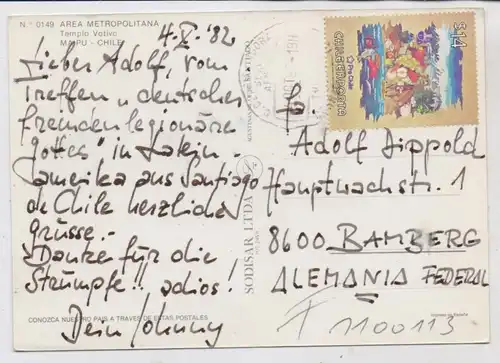 N.º 0149 AREA METROPOLITANA
Templo Votivo
MAIPU - CHILE
4.V.'82
Lieber Adolf, vom
Treffen „deutscher
Fremdenlegionäre
Gottes" in Latein-
amerika aus Santiago
de Chile herzliche
Grüsse.-
Danke für die
Strümpfe!! adios!
Dein Johnny
CONOZCA NUESTRO PAIS A TRAVES DE ESTAS POSTALES
SODISAR LTDA
$14
CHILE EXPORTA
Pro-Chile
Adolf Dippold
Hauptwachstr. 1
8600 BAMBERG
ALEMANIA FEDERAL
1100113